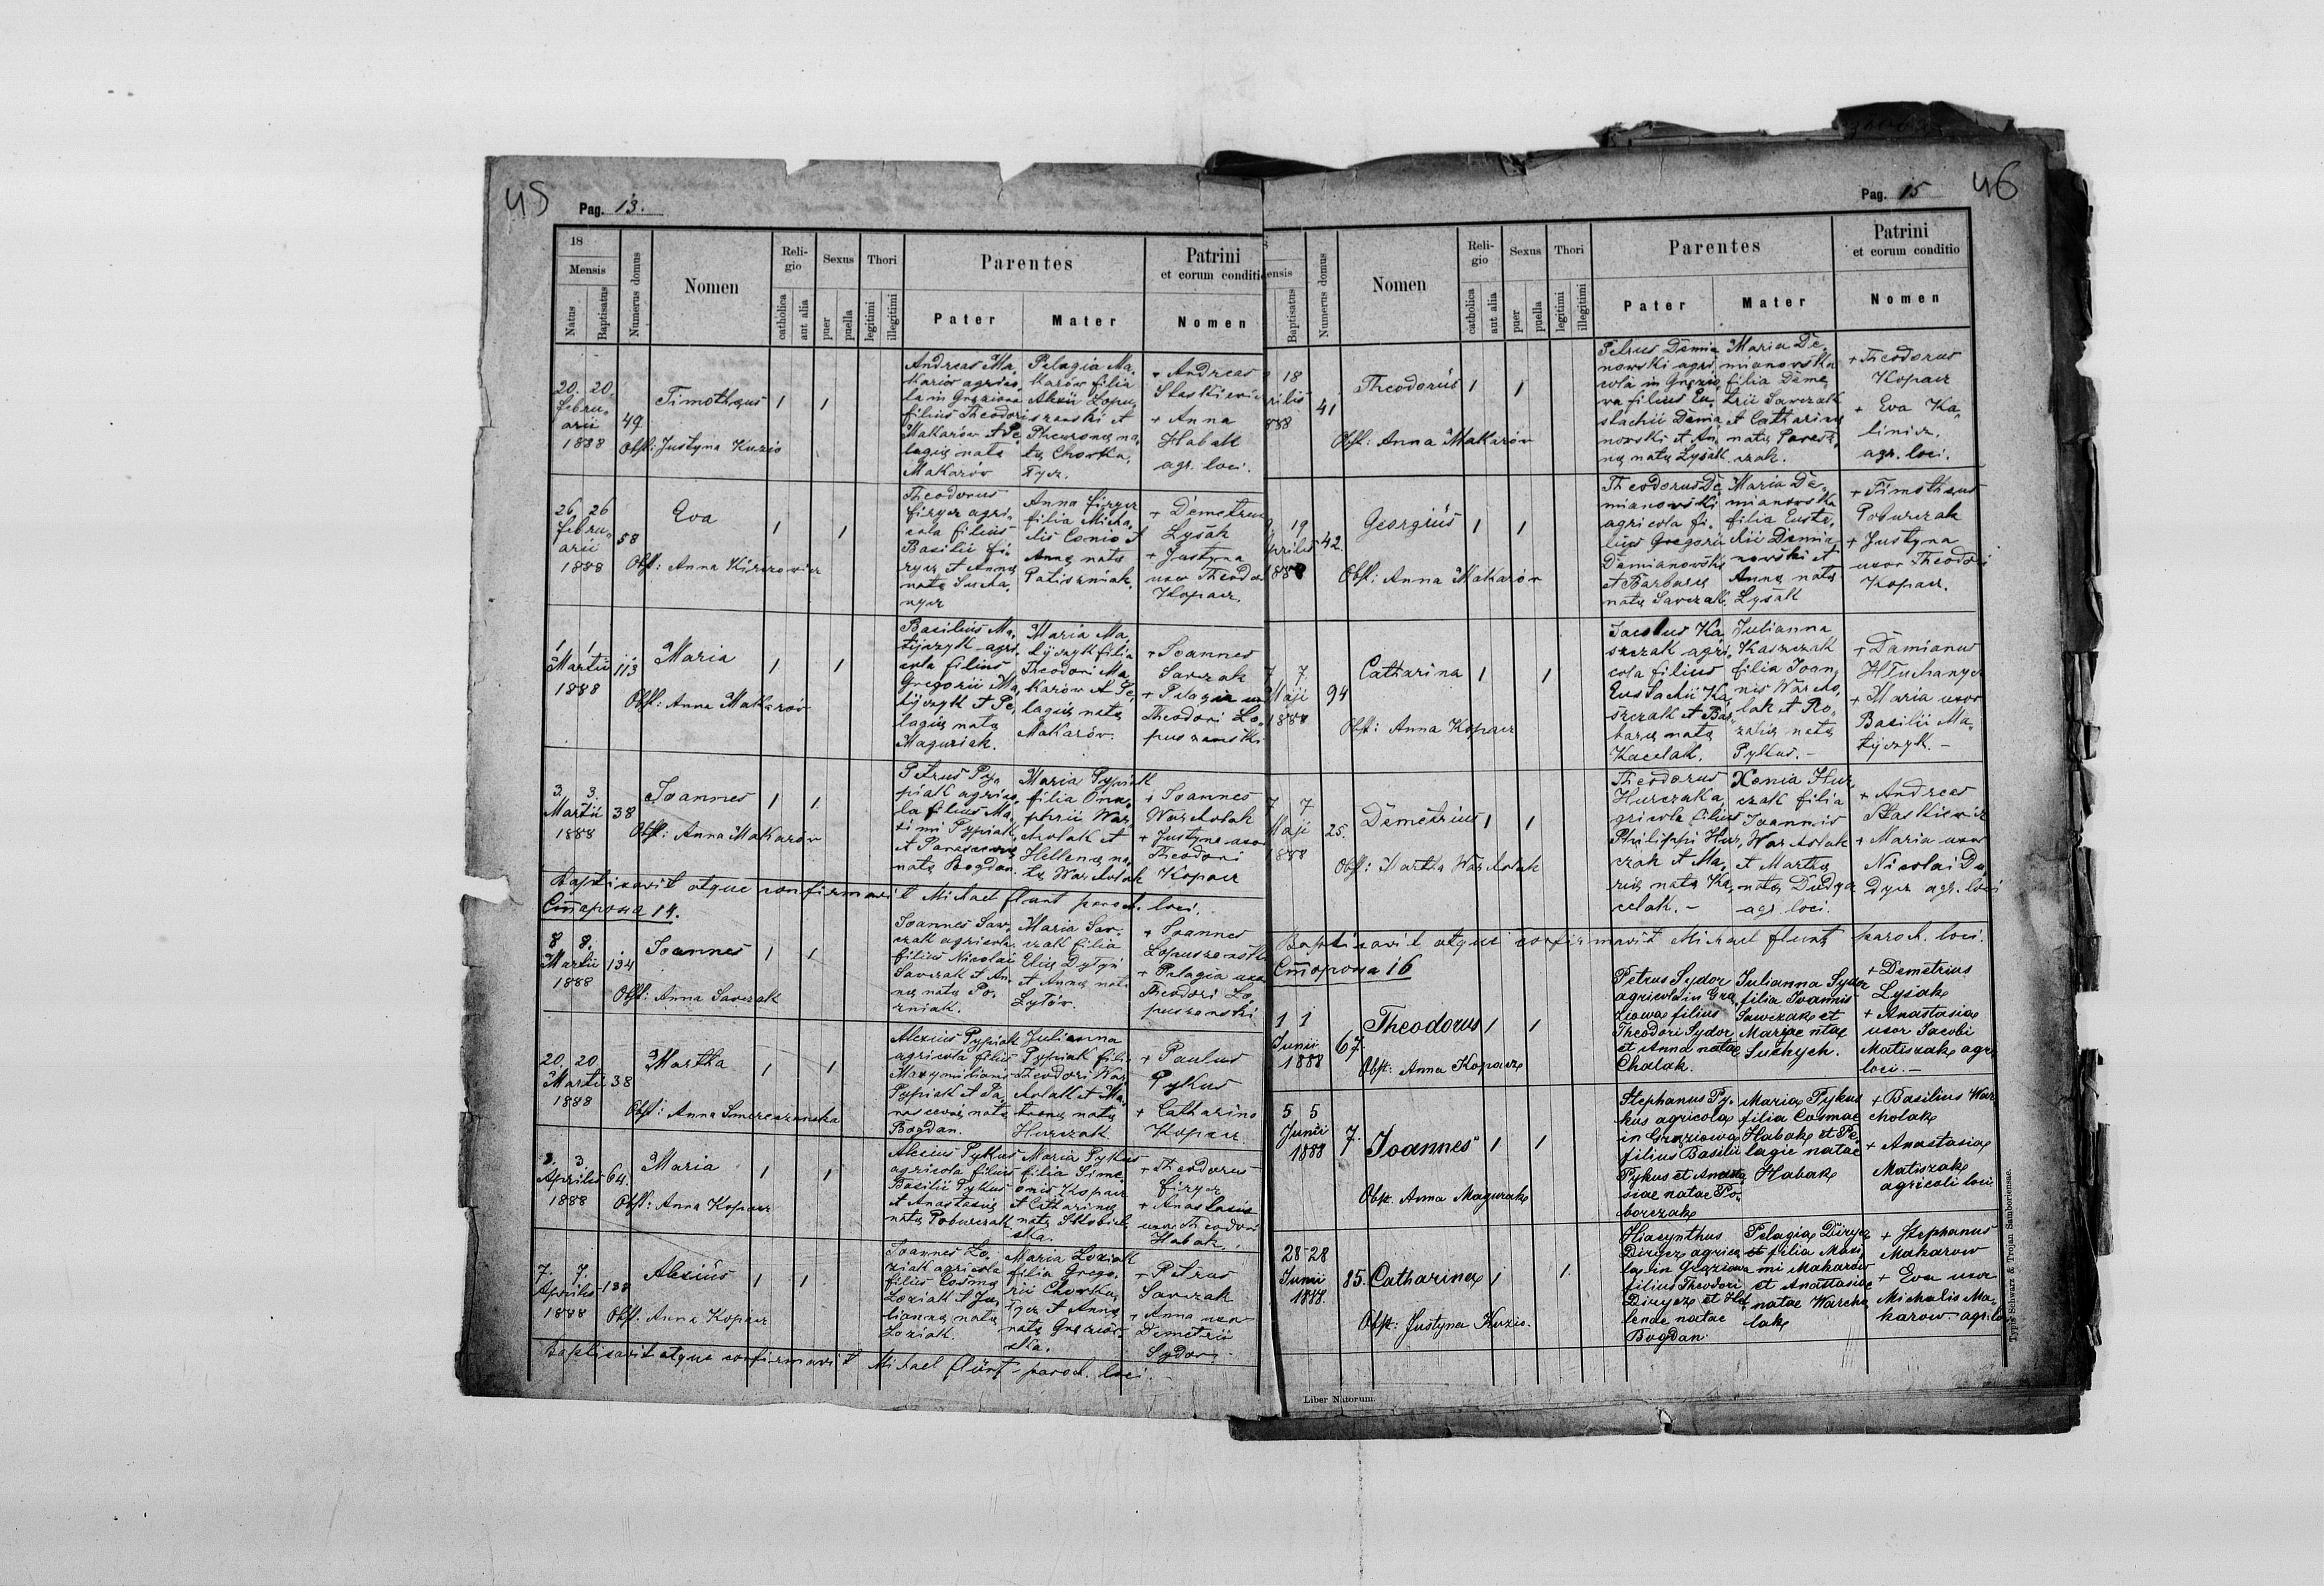 45
Pag. 13.
18
Mensis
Natus
Baptisatus
Numerus domus
Nomen
Religio
catholica
aut alia
Sexus
puer
puella
Thori
legitimi
illegitimi
Parentes
Pater
Mater
Patrini
et eorum conditio
Nomen
20. 20.
febru-
arii
1888
49.
Timotheus 1 1
Obst: Justyna Kuzio
Andreas Ma-
karów agrico-
la in Grąziowa
filius Theodori
Makarów et Pe-
lagię natę
Makarów
Pelagia Ma-
karów filia
Alexii Lopu-
szanski et
Phewronę na-
tę Chorka-
Tycz.
+ Andreas
Staskiewicz
+ Anna
Habak
agr. loci.
26 26
febru-
arii
1888
58
Eva 1 1
Obst: Anna Kirczowicz
Theodorus
firycz agri-
cola filius
Basilii fi-
rycz et Annę
natę Sucha-
nycz
Anna firycz
filia Micha-
elis Conio et
Annę natę
Patiszniak.
+ Demetrius
Lysak
+ Justyna
uxor Theodori
Kopacz.
1 1
Martii
1888
113
Maria 1 1
Obst: Anna Makarów
Basilius Ma-
tyczyk agri-
cola filius
Gregorii Ma-
tyczyk et Pe-
lagię natę
Maguriak.
Maria Ma-
tyczyk filia
Theodori Ma-
karów et Pe-
lagię natę
Makarów.
+ Ioannes
Sawczak
+ Pelagia uxor
Theodori Lo-
puszanski
3. 3.
Martii
1888
38
Ioannes 1 1
Obst: Anna Makarów
Petrus Py-
piak agrico-
la filius Ma-
ximi Pypiak
et Parascewę
natę Bogdan.
Maria Pypiak
filia Onu-
phrii War-
cholak et
Hellenę na-
tę Warcholak
+ Ioannes
Warcholak
+ Justyna uxor
Theodori
Kopacz
Baptisavit atque confirmavit Michael flunt paroch. loci.
Сторона 14.
8 8.
Martii
1888
134
Ioannes 1 1
Obst: Anna Sawczak
Ioannes Saw-
czak agricola
filius Nicolai
Sawczak et An-
nę natę Po-
zniak.
Maria Saw-
czak filia
Elię Dytyn
et Annę nat.
Zytów.
+ Ioannes
Lopuszanski
+ Pelagia uxor
Theodori Lo-
puszanski
20 20
Martii
1888
38
Martha 1 1
Obst: Anna Smereczanska
Alexius Pypiak
agricola filius
Maxymiliani
Pypiak et Pa-
rascewę natę
Bogdan.
Julianna
Pypiak filia
Theodori War-
cholak et Ma-
tronę natę
Hurczak
+ Paulus
Pykus
+ Catharina
Kopacz
3. 3.
Aprilis
1888
64.
Maria 1 1
Obst: Anna Kopacz
Alexius Pykus
agricola filius
Basilii Pykus
et Anastasię
natę Poburczak
Maria Pykus
filia Sime-
onis Kopacz
et Catharinę
natę Skobiel-
ska.
+ Theodorus
firycz
+ Anastasia
uxor Theodori
Habak.
7. 7.
Aprilis
1888
138
Alexius 1 1
Obst. Anna Kopacz
Ioannes Lo-
ziak agricola
filius Cosmę
Loziak et Ju-
liannę natę
Loziak.
Maria Loziak
filia Grego-
rii Chorka-
Tycz et Annę
natę Grąziow-
ska.
+ Petrus
Sawczak
+ Anna uxor
Demetrii
Sydor
Baptisavit atque confirmavit Michael flunt paroch. loci.
46
Pag. 15
Mensis
Baptisatus
Numerus domus
Nomen
Religio
catholica
aut alia
Sexus
puer
puella
Thori
legitimi
illegitimi
Parentes
Pater
Mater
Patrini
et eorum conditio
Nomen
18
rilis
888
41
Theodorus 1 1
Obst: Anna Makarów
Petrus Demia-
nowski agri-
cola in Grązio-
va filius Eu-
stachii Demia-
nowski et An-
nę natę Lysak
Maria De-
mianowska
filia Deme-
trii Sawczak
et Catharinę
natę Parest-
czak.
+ Theodorus
Kopacz
+ Eva Ka-
linicz.
agr. loci.
19
Aprilis
1888
42.
Georgius 1 1
Obst: Anna Makarów
Theodorus De-
mianowski
agricola fi-
lius Gregorii
Demianowski
et Barbarę
natę Sawczak
Maria De-
mianowska
filia Eusta-
chii Demia-
nowski et
Annę natę
Lysak
+ Timotheus
Poburczak
+ Justyna
uxor Theodori
Kopacz.
7 7
Maji
1888
94
Catharina 1 1
Obst: Anna Kopacz
Jacobus Ka-
szczak agri-
cola filius
Eustachii Ka-
szczak et Bar-
barę natę
Kacelak.
Julianna
Kaszczak
filia Ioan-
nis Warcho-
lak et Ro-
zalię natę
Pykus.
+ Damianus
Hłuchanycz
+ Maria uxor
Basilii Ma-
tyczyk.
7 7
Maji
1888
25.
Demetrius 1 1
Obst: Martha Warcholak
Theodorus
Hurczak a-
gricola filius
Philippi Hur-
czak et Ma-
rię natę Ka-
celak.
Xenia Hur-
czak filia
Ioannis
Warcholak
et Marthę
natę Dudycz
agr. loci.
+ Andreas
Staskiewicz
+ Maria uxor
Nicolai Du-
Dycz agr. loci
Baptisavit atque confirmavit Michael flunt paroch. loci.
Сторона 16
1 1
Junii
1888
67
Theodorus 1 1
Obst: Anna Kopacz
Petrus Sydor
agricola in Grą-
ziowa filius
Theodori Sydor
et Anna natae
Chalak.
Julianna Sydor
filia Ioannis
Sawczak et
Mariae ntae
Suchych.
+ Demetrius
Lysiak
+ Anastasia
uxor Iacobi
Matiszak agri.
loci.
5 5
Junii
1888
7.
Ioannes 1 1
Obst. Anna Magurak
Stephanus Py-
kus agricola
in Grąziowa
filius Basilii
Pykus et Anasta-
siae natae Po-
borczak
Maria Pykus
filia Cosmae
Habak et Pe-
lagie natae
Habak
+ Basilius War-
cholak
+ Anastasia
Matiszak
agricoli loci
28 28
Junii
1888.
85.
Catharina 1 1.
Obst: Justyna Kuzio.
Hiacynthus
Dirycz agrico-
la in Grąziowa
filius Theodori
Dirycz et He-
lende natae
Bogdan.
Pelagia Dirycz
et filia Maxi-
mi Makarów
et Anastasiae
natae Warcho-
lak
+ Stephanus
Makarow
+ Eva uxor
Michalis Ma-
karow agri. loci
Liber Natorum.
Typis Schwarz & Trojan Samboriensae.